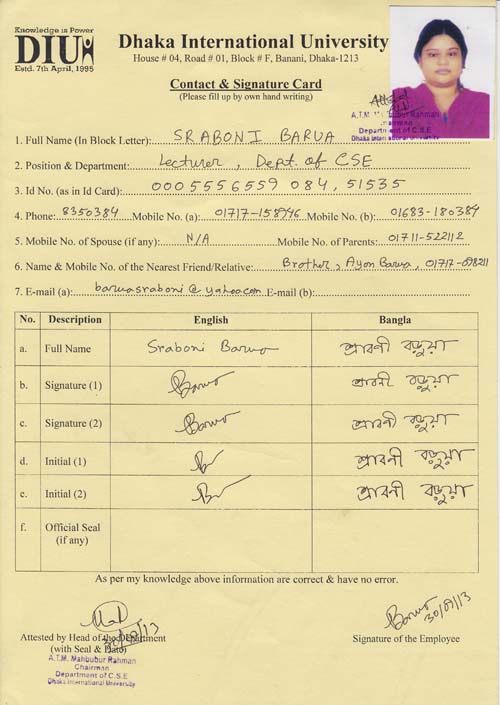 Knowledge is Power
DIU
Estd. 7th April, 1995
Dhaka International University
House # 04, Road # 01, Block # F, Banani, Dhaka-1213
Contact & Signature Card
(Please fill up by own hand writing)
A.T.M. Mahbubur Rahman
Chairman
Department of C.S.E
Dhaka International University
1. Full Name (In Block Letter): SRABONI BARUA
2. Position & Department: Lecturer, Dept. of CSE
3. Id No. (as in Id Card): 0005556559 084, 51535
4. Phone: 8350384 Mobile No. (a): 01717-158946 Mobile No. (b): 01683-180384
5. Mobile No. of Spouse (if any): N/A Mobile No. of Parents: 01711-522112
6. Name & Mobile No. of the Nearest Friend/Relative: Brother, Ayon Barua, 01717-098211
7. E-mail (a): baruasraboni@yahoo.com E-mail (b):
No. Description English Bangla
a. Full Name Sraboni Barua শ্রাবনী বড়ুয়া
b. Signature (1) Barua শ্রাবনী বড়ুয়া
c. Signature (2) Barua শ্রাবনী বড়ুয়া
d. Initial (1) শ্রাবনী বড়ুয়া
e. Initial (2) শ্রাবনী বড়ুয়া
f. Official Seal
(if any)
As per my knowledge above information are correct & have no error.
Barua 30/09/13
Attested by Head of the Department
(with Seal & Date)
Signature of the Employee
A.T.M. Mahbubur Rahman
Chairman
Department of C.S.E
Dhaka International University